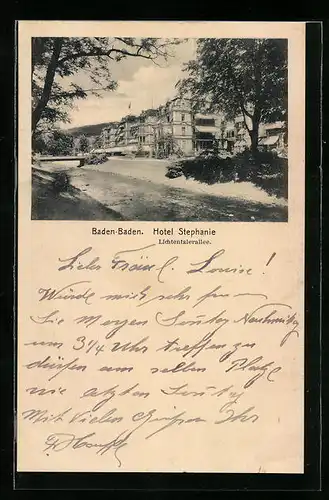 Baden-Baden. Hotel Stephanie
Lichtentalerallee.
Liebes Fräul. Louise!
Würde mich sehr freuen
Sie Morgen Sonntag Nachmittag
um 3¼ Uhr treffen zu
dürfen am selben Platze
wie letzten Sonntag
Mit vielen Grüßen Ihr